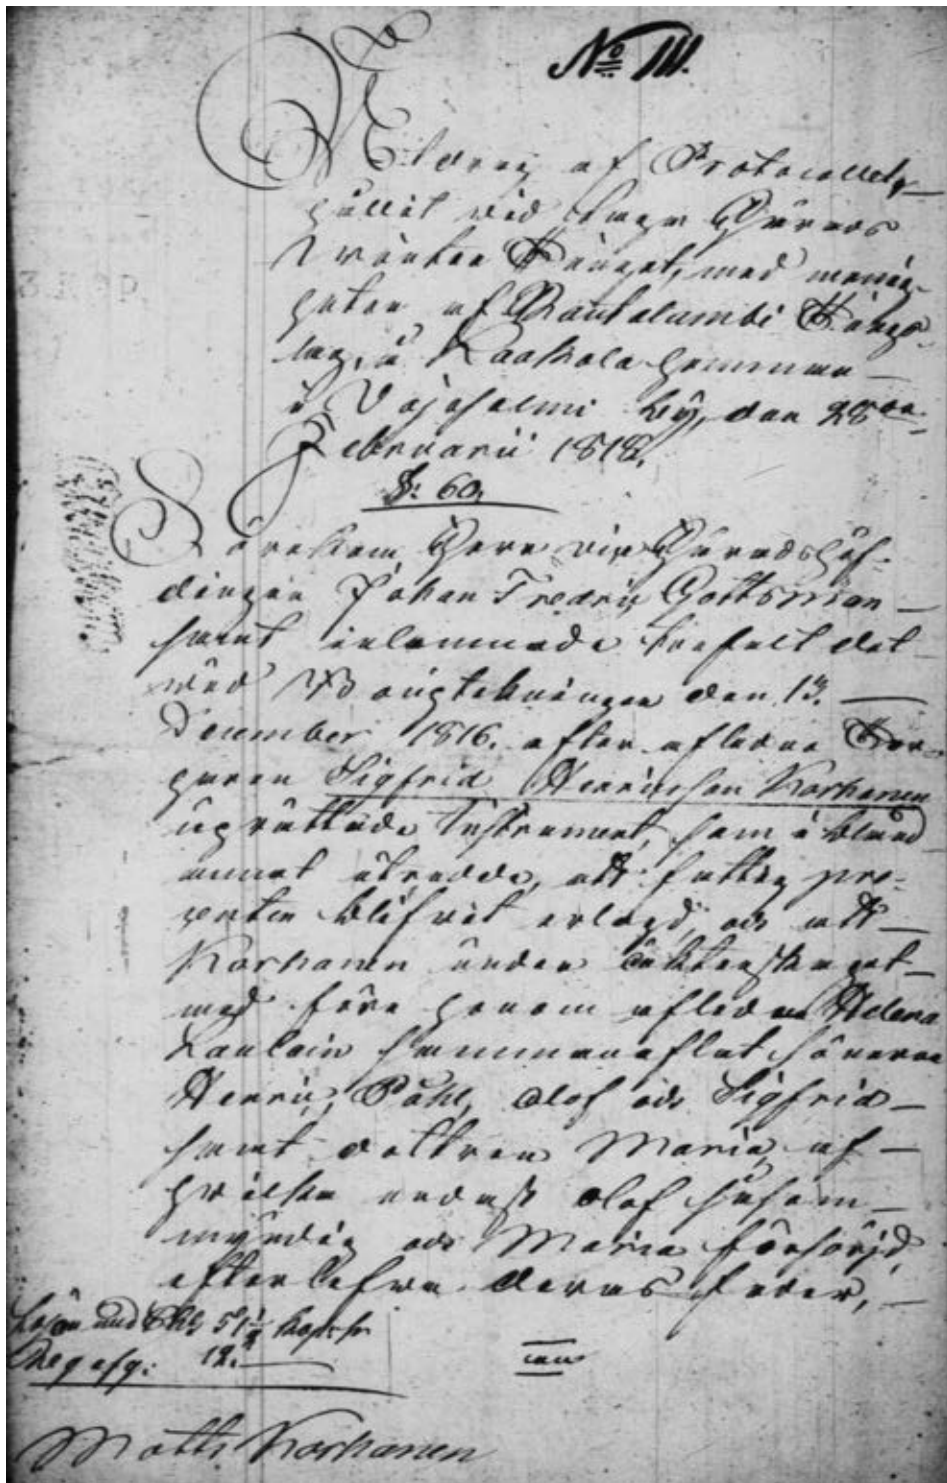 No III.
Utdrag af Protocollet,
hållit vid laga Härads
Vinter Tinget, med menig-
heten af Rautalambi Tings-
lag, å Kaakola hemman
i Vajasalmi by, den 28de
Februarii 1818.
§: 60.
Förekom Herr vice Häradshöf-
dingen Johan Fredric Gottsman
samt inlemnade trefalt det
vid Bouptekningen den 13.
December 1816. efter aflidne Tor-
paren Sigfrid Henricsson Korhonen
uprättade Instrument, som i bland
annat utredde, att fattig pro-
centen blifvit erlagd, och att
Korhonen under äktenskapet
med före honom aflidne Helena
Laulain sammanaflat sönerne
Henric, Påhl, Olof och Sigfrid
samt dottren Maria, af
hvilka endast Olof såsom
myndig och Maria försörjd,
efterlefva deras fader,
Lösen med Skt 51 1/2 kop: Sr
12.
Matts Korhonen